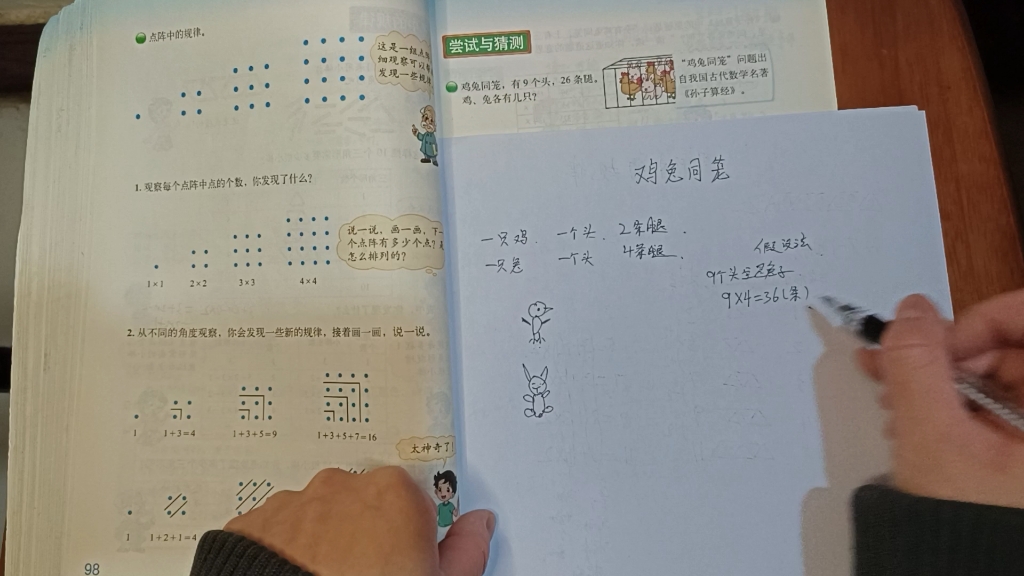 点阵中的规律。
这是一组点
细观察可以
发现一些规律
1. 观察每个点阵中点的个数，你发现了什么？
说一说，画一画，下一
个点阵有多少个点？
怎么排列的？
1×1 2×2 3×3 4×4
2. 从不同的角度观察，你会发现一些新的规律，接着画一画，说一说。
1 1+3=4 1+3+5=9 1+3+5+7=16
太神奇了
1 1+2+1=4
98
尝试与猜测
鸡兔同笼，有9个头，26条腿。
鸡、兔各有几只？
“鸡兔同笼”问题出
自我国古代数学名著
《孙子算经》。
鸡兔同笼
一只鸡. 一个头. 2条腿.
一只兔 一个头 4条腿.
假设法
9个头全是兔子
9×4=36(条)